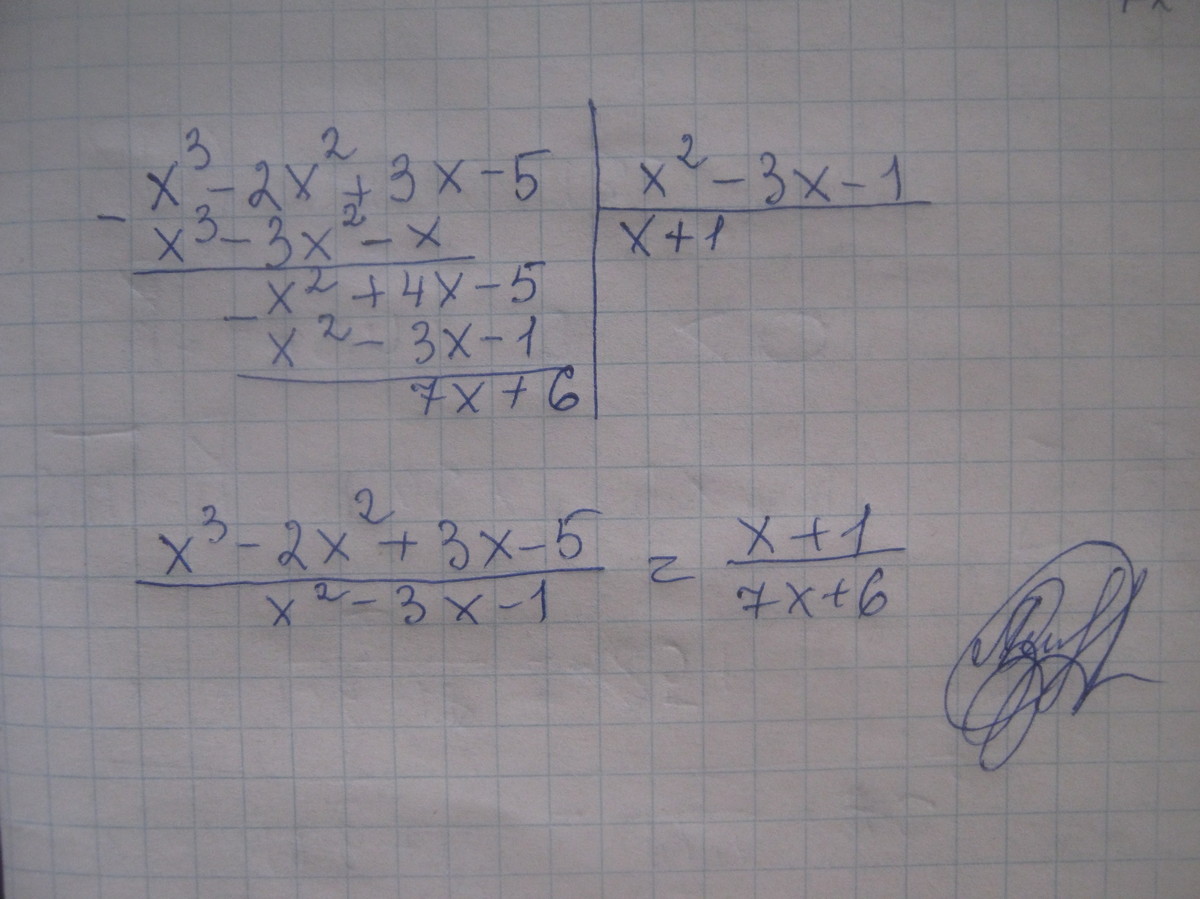 x³ - 2x² + 3x - 5 | x² - 3x - 1
- x³ - 3x² - x | x + 1
- x² + 4x - 5
x² - 3x - 1
7x + 6
x³ - 2x² + 3x - 5 = x + 1
x² - 3x - 1 7x + 6